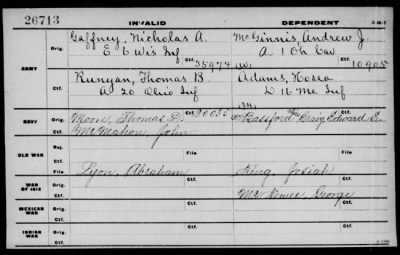 26713
INVALID
DEPENDENT
Gaffney, Nicholas A.
McGinnis, Andrew J.
Orig.
E 6 Wis Inf
A 1 Oh Cav
Ctf.
35974
W.
Ctf.
10905
ARMY
Runyan, Thomas B.
Adams, Hosea
Orig.
A 20 Ohio Inf
D 16 Me Inf
Ctf.
M.
Ctf.
NAVY
Orig.
Moore, Thomas D.
20032
Bassford Craig Edward
Ctf.
McMahon, John
Ctf.
OLD WAR
Rej.
File
Ctf.
Ctf.
WAR OF 1812
Orig.
Lyon, Abraham
King, Josiah
Ctf.
Ctf.
MEXICAN WAR
Orig.
George
Ctf.
Ctf.
INDIAN WAR
Orig.
Ctf.
Ctf.